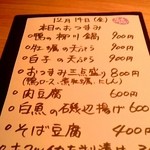 12月19日(金)
本日のおつまみ
鴨の柳川鍋 900円
牡蠣の天ぷら 900円
白子の天ぷら 900円
おつまみ三点盛り 800円
(鴨のつくね、煮穴子、にしん)
肉豆腐 600円
白魚の磯辺揚げ 600
そば豆腐 400円